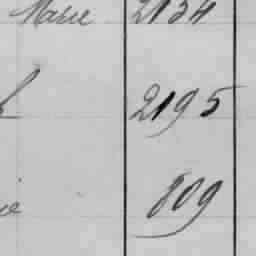 Marie 2134
2195
809